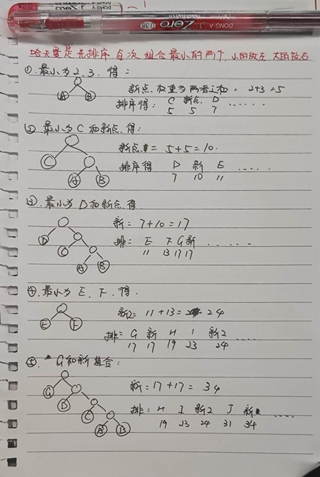 DONG-A
Zero
哈夫曼是先排序 每次组合最小的两个, 小的放左 大的放右
①. 最小为 2. 3. 得:
A B
新点 权重为两者之和 2+3=5
排序得: C 新点 D ......
5 5 7
② 最小为 C 和新点. 得:
C A B
新点 = 5+5=10.
排序得 D 新 E ......
7 10 11
③. 最小为 D 和新点. 得
D C A B
新 = 7+10=17
排: E F G 新 ......
11 13 17 17
④. 最小为 E. F. 得.
E F
新2: 11+13= 24
排: G 新 H I 新2 ......
17 17 19 23 24
⑤. G 和新 组合:
G D C A B
新 = 17+17= 34
排: H I 新2 J 新 ......
19 23 24 31 34